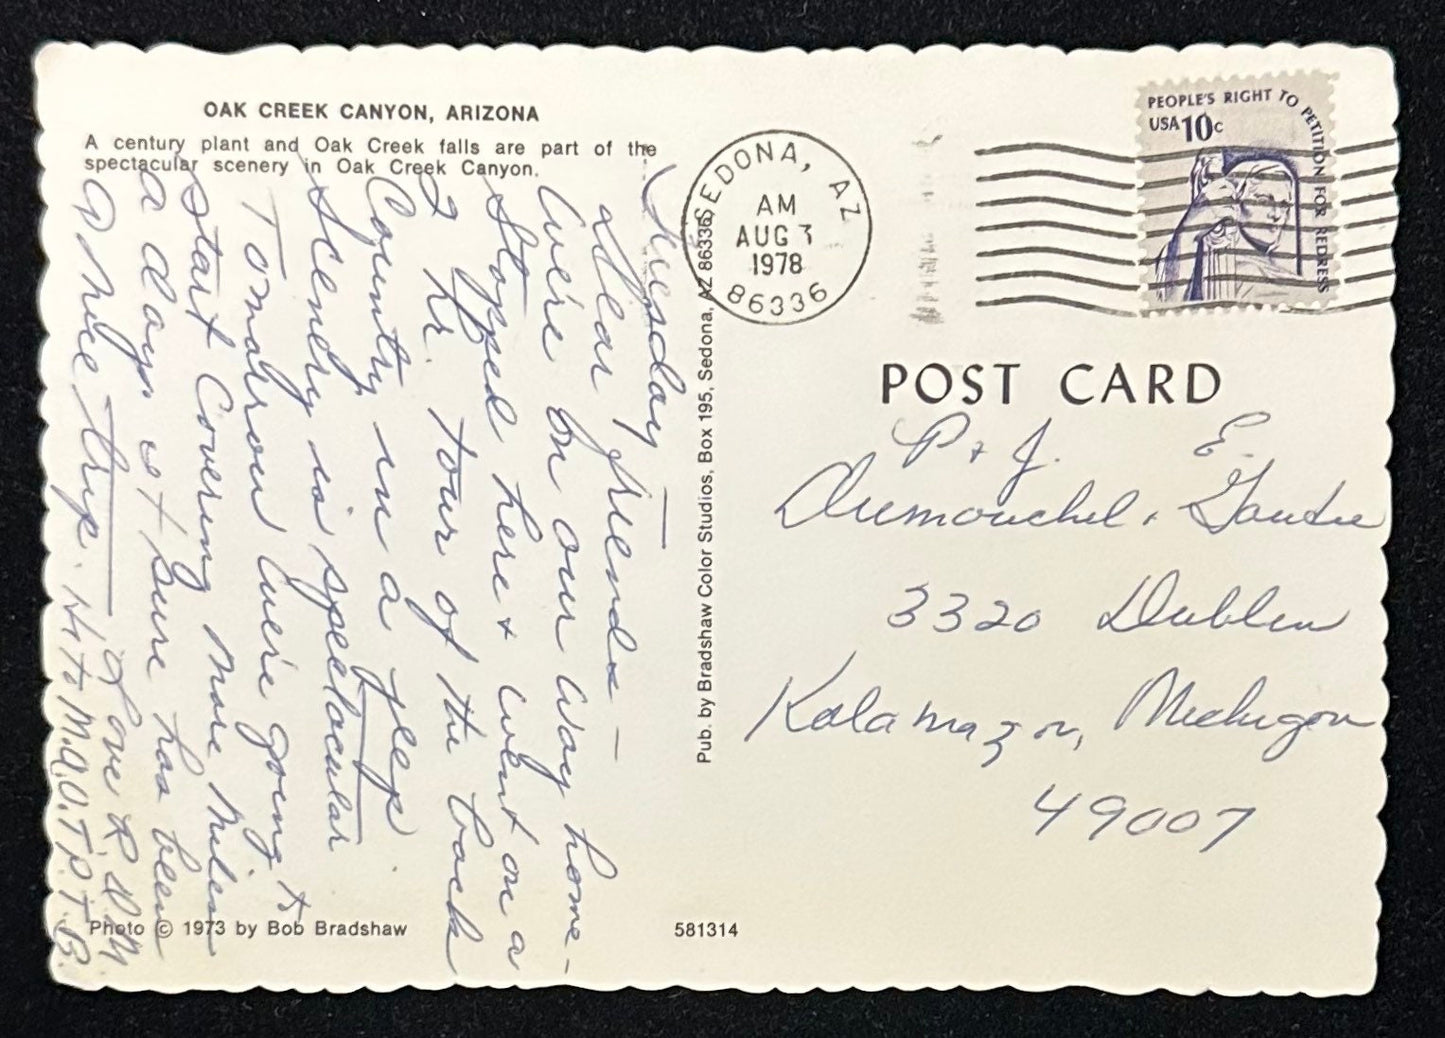 OAK CREEK CANYON, ARIZONA
A century plant and Oak Creek falls are part of the
spectacular scenery in Oak Creek Canyon.
Tuesday
Dear friends –
We're on our way home –
Stopped here & went on a
2 hr. tour of the back
Country in a jeep.
Scenery is spectacular
Tomorrow we're going to
start covering more miles
a day. It sure has been
a nice trip.
Love R & M
Hi to M.A.O.T.P.T.B.
Photo © 1973 by Bob Bradshaw
581314
Pub. by Bradshaw Color Studios, Box 195, Sedona, AZ 86336
SEDONA, AZ
AM
AUG 3
1978
86336
PEOPLE'S RIGHT TO PETITION FOR REDRESS
USA 10c
POST CARD
P & J. E.
Dumouchel,
3320 Dublin
Kalamazoo, Michigan
49007